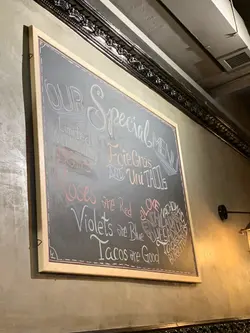 OUR Special MENU
Foie Gras
AND Uni TACOS
Roses are Red
Violets are Blue
Tacos are Good